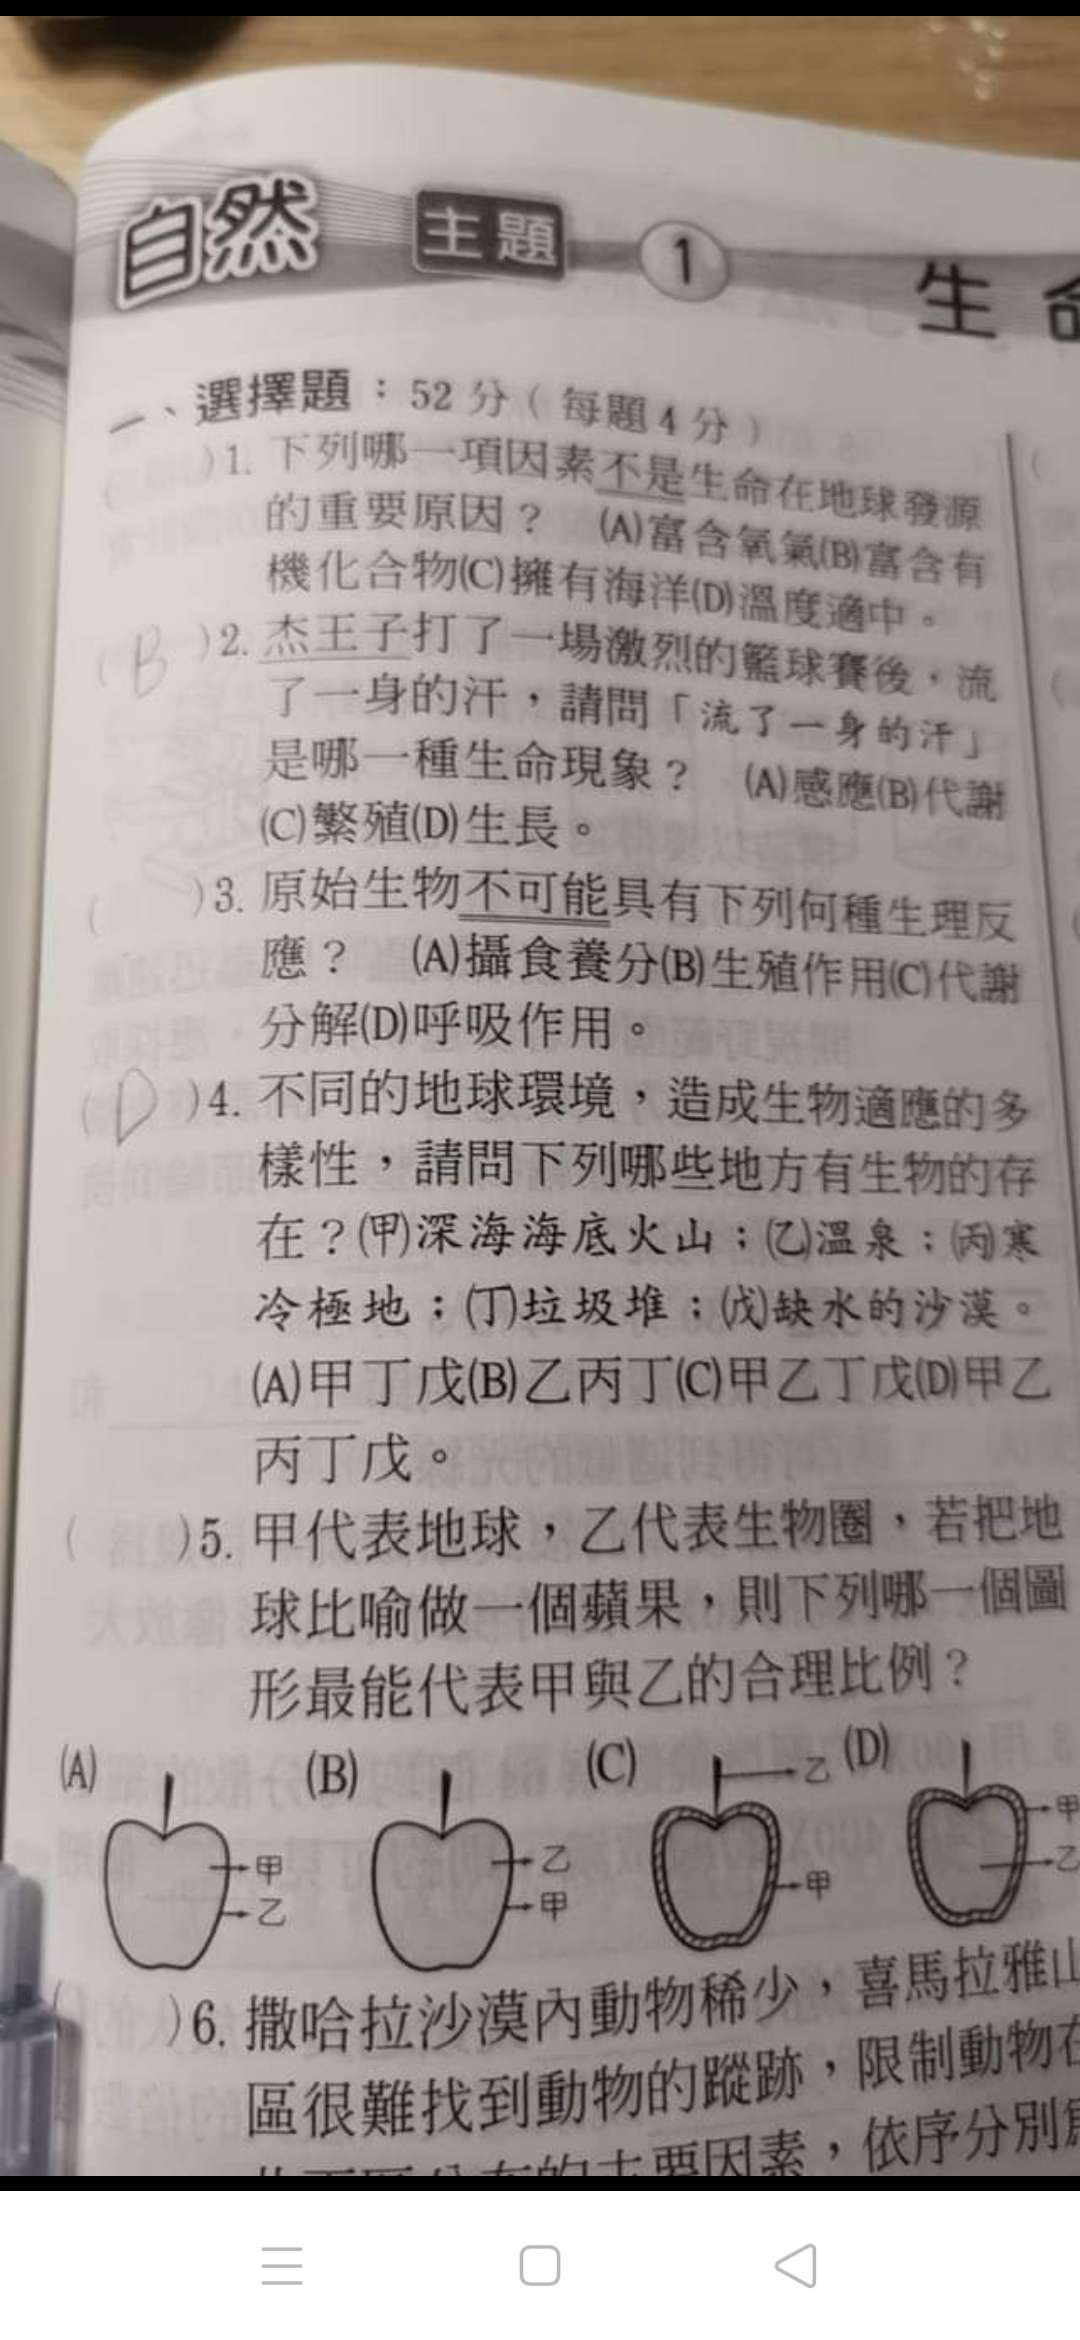 自然 主題 1 生命
一、選擇題：52分（每題4分）
( )1. 下列哪一項因素不是生命在地球發源
的重要原因？ (A)富含氧氣(B)富含有
機化合物(C)擁有海洋(D)溫度適中。
(B)2. 杰王子打了一場激烈的籃球賽後，流
了一身的汗，請問「流了一身的汗」
是哪一種生命現象？ (A)感應(B)代謝
(C)繁殖(D)生長。
( )3. 原始生物不可能具有下列何種生理反
應？ (A)攝食養分(B)生殖作用(C)代謝
分解(D)呼吸作用。
(D)4. 不同的地球環境，造成生物適應的多
樣性，請問下列哪些地方有生物的存
在？(甲)深海海底火山；(乙)溫泉；(丙)寒
冷極地；(丁)垃圾堆；(戊)缺水的沙漠。
(A)甲丁戊(B)乙丙丁(C)甲乙丁戊(D)甲乙
丙丁戊。
( )5. 甲代表地球，乙代表生物圈，若把地
球比喻做一個蘋果，則下列哪一個圖
形最能代表甲與乙的合理比例？
(A) 甲 乙
(B) 乙 甲
(C) 乙 甲
(D) 甲 乙
)6. 撒哈拉沙漠內動物稀少，喜馬拉雅山
區很難找到動物的蹤跡，限制動物在
的主要因素，依序分別